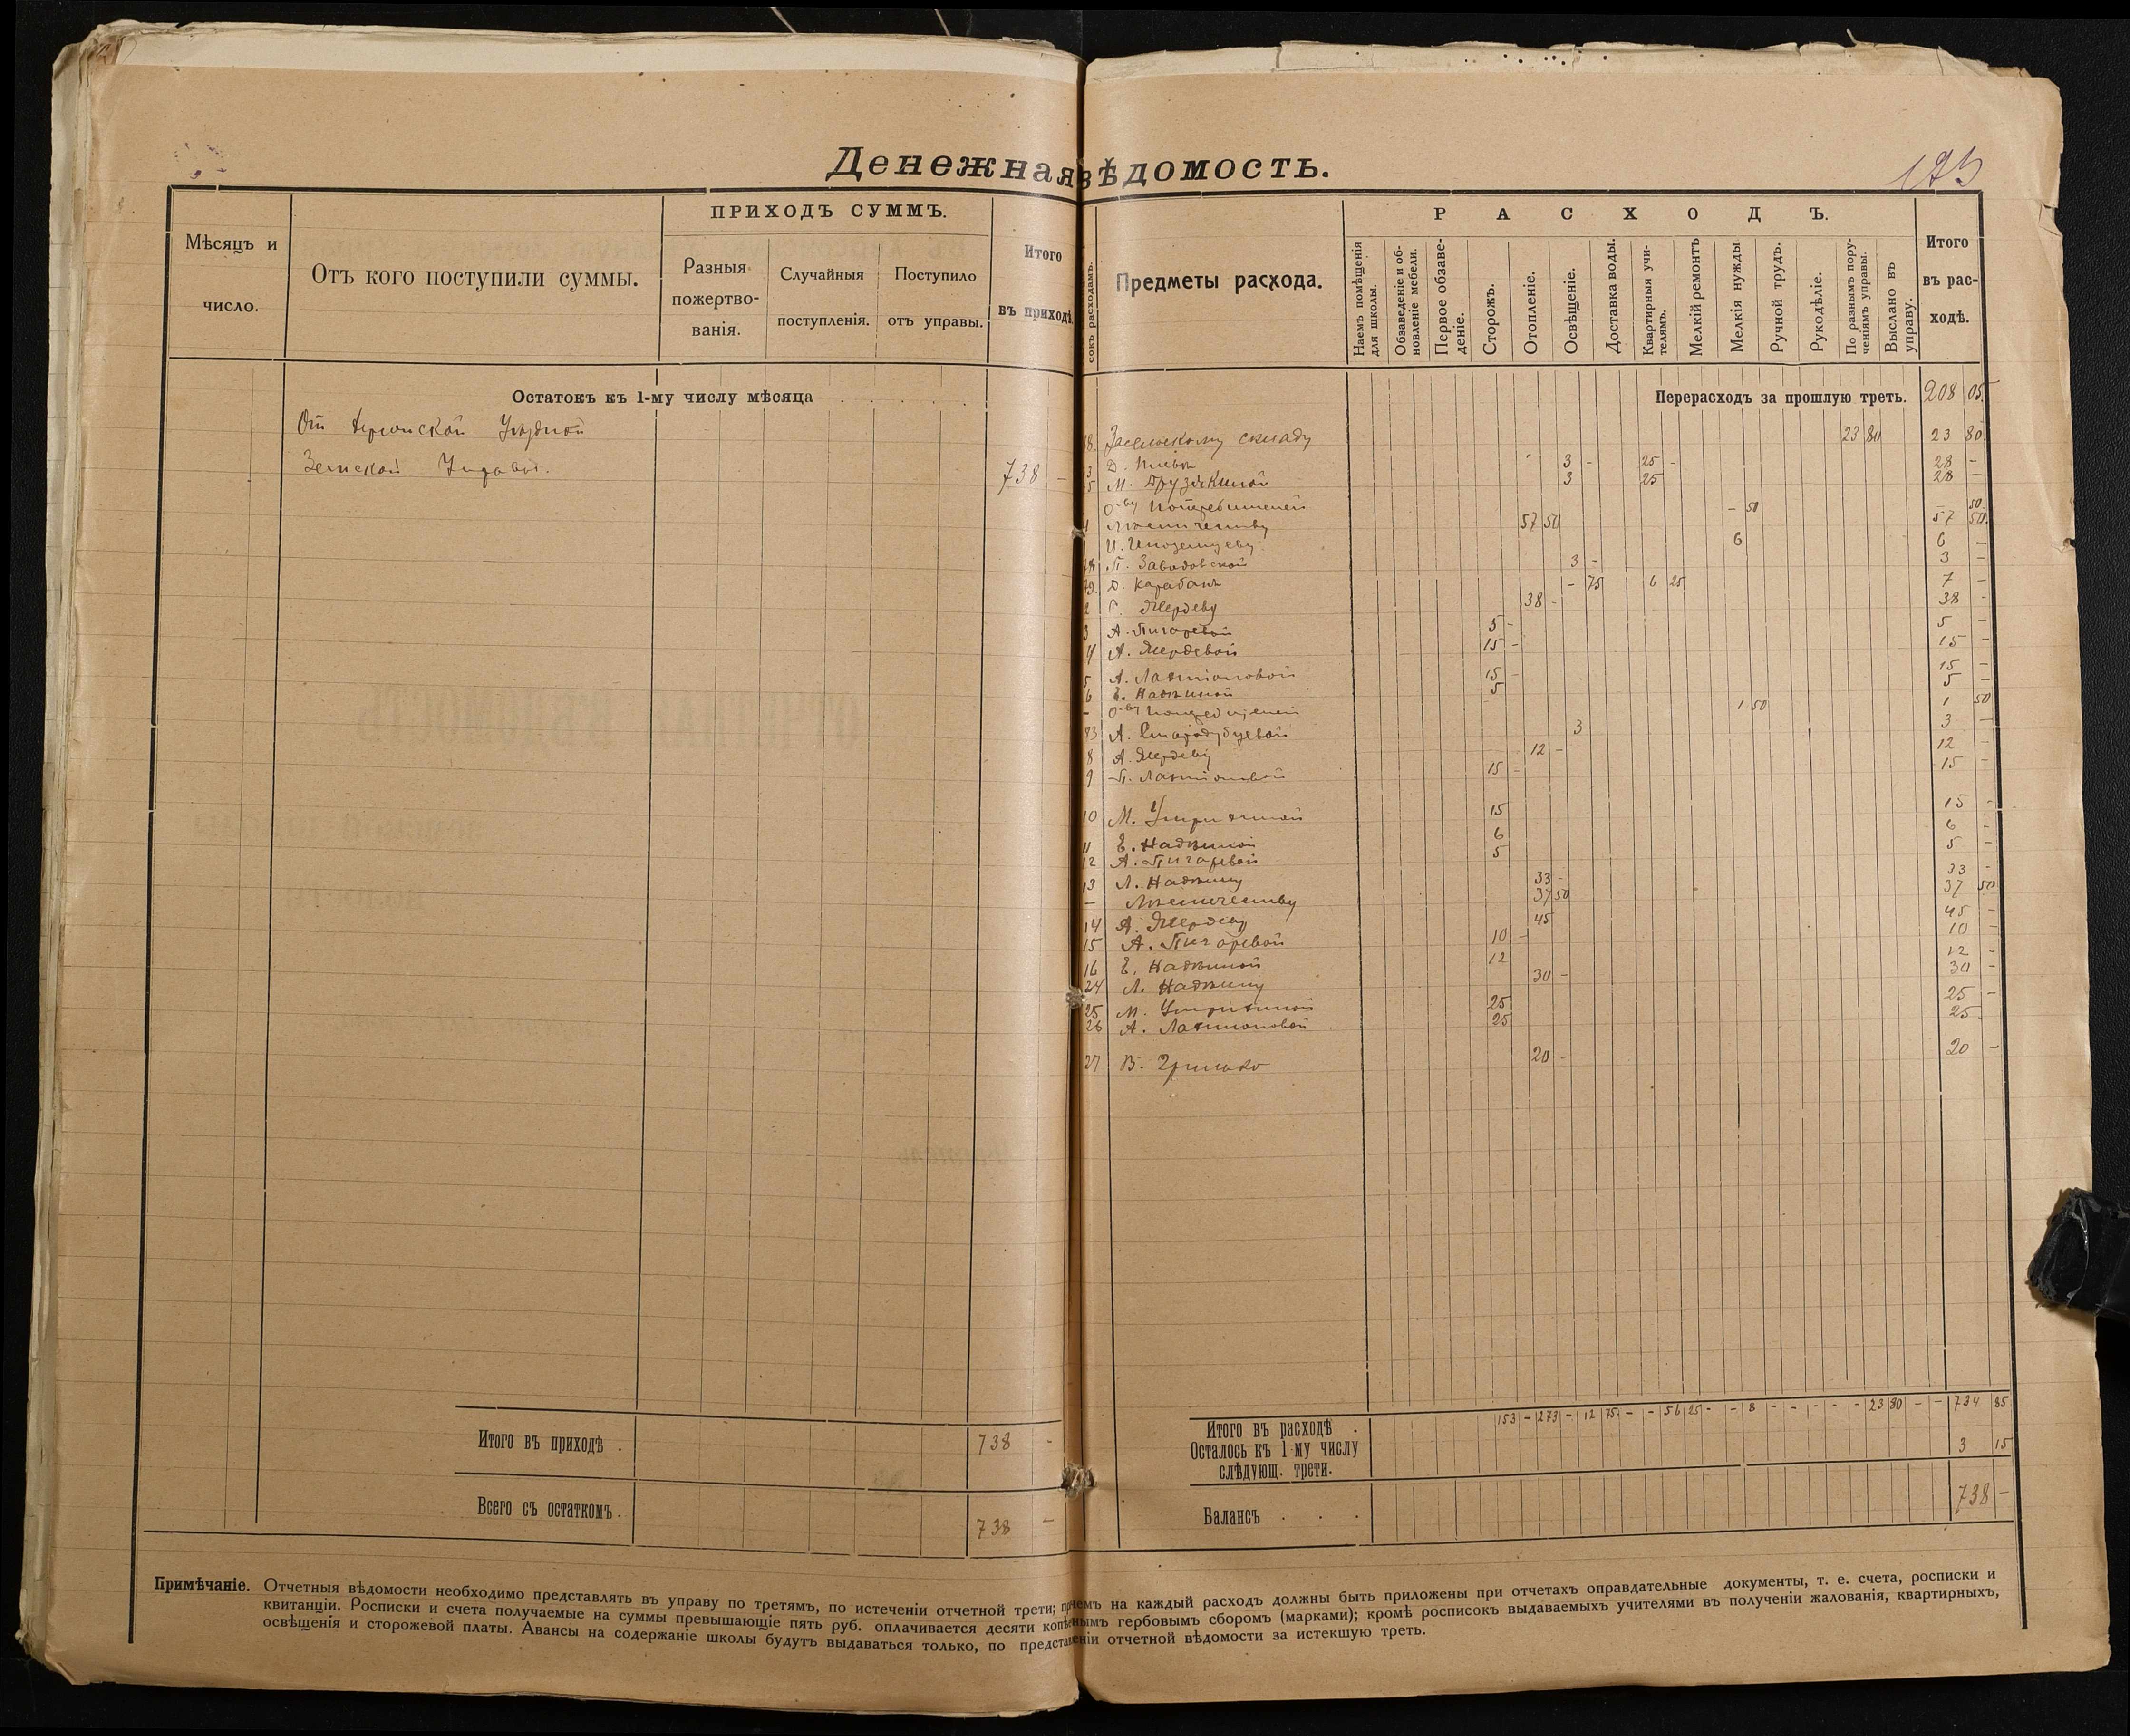 Денежная вѣдомость.
173
Мѣсяцъ и число.
Отъ кого поступили суммы.
ПРИХОДЪ СУММЪ.
Разныя пожертвованія.
Случайныя поступленія.
Поступило отъ управы.
Итого въ приходѣ
Остатокъ къ 1-му числу мѣсяца
От Херсонской Уѣздной
Земской Управы. 738 -
Итого въ приходѣ . 738 -
Всего съ остаткомъ . 738 -
сокъ расходамъ.
Предметы расхода.
РАСХОДЪ.
Наемъ помѣщенія для школы.
Обзаведеніе и обновленіе мебели.
Первое обзаведеніе.
Сторожъ.
Отопленіе.
Освѣщеніе.
Доставка воды.
Квартирныя учителямъ.
Мелкій ремонтъ
Мелкія нужды
Ручной трудъ.
Рукодѣліе.
По разнымъ порученіямъ управы.
Выслано въ управу.
Итого въ расходѣ.
Перерасходъ за прошлую треть. 208 05.
складу 23 80 23 80.
3 Д. 3 - 25 - 28 -
5 М. 3 25 28 -
О-ву - 50 50.
57 50 57 50.
И. 6 6 -
П. Заводовской 3 - 3 -
Д. Карабан - 75 6 25 7 -
2 Г. Жердеву 38 - 38 -
3 А. Пигаревой 5 - 5 -
4 А. Жердевой 15 - 15 -
5 А. Лактіоновой 15 - 15 -
6 Е. 5 5 -
- О-ву 1 50 1 50
А. Стародубцевой 3 3 -
8 А. Жердеву 12 - 12 -
9 П. Лактіоновой 15 - 15 -
10 М. 15 15 -
11 Е. 6 6 -
12 А. Пигаревой 5 5 -
13 Л. 33 - 33 -
- 37 50 37 50
14 А. Жердеву 45 45 -
15 А. Пигаревой 10 - 10 -
16 Е. 12 12 -
24 Л. 30 - 30 -
25 М. 25 25 -
26 А. Лактіоновой 25 25
27 В. 20 - 20 -
Итого въ расходѣ . 153 - 273 - 12 75 - - 56 25 - - 8 - - - - - 23 80 - - 734 85
Осталось къ 1-му числу слѣдующ. трети. 3 15
Балансъ . . . 738 -
Примѣчаніе. Отчетныя вѣдомости необходимо представлять въ управу по третямъ, по истеченіи отчетной трети; причемъ на каждый расходъ должны быть приложены при отчетахъ оправдательные документы, т. е. счета, росписки и
квитанціи. Росписки и счета получаемые на суммы превышающіе пять руб. оплачивается десяти копѣечнымъ гербовымъ сборомъ (марками); кромѣ росписокъ выдаваемыхъ учителями въ полученіи жалованія, квартирныхъ,
освѣщенія и сторожевой платы. Авансы на содержаніе школы будутъ выдаваться только, по представленіи отчетной вѣдомости за истекшую треть.